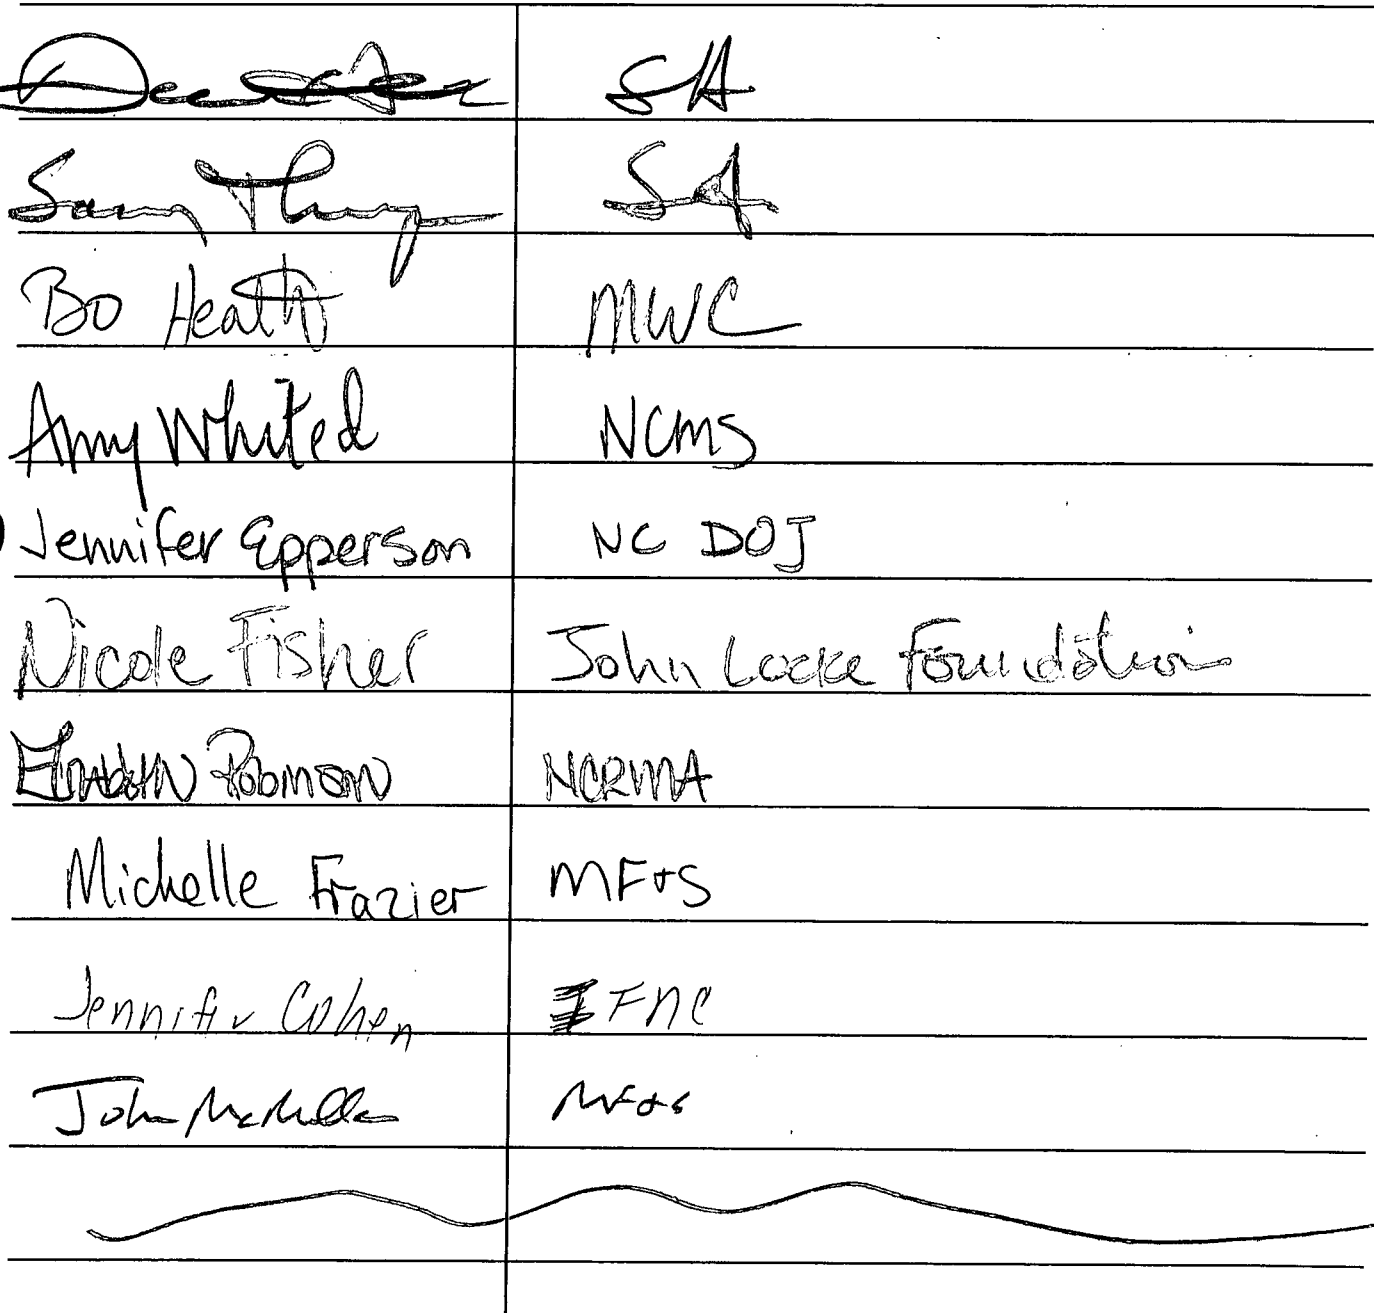 SA
Sam Thorp SA
Bo Heath MWC
Amy Whited NCMS
Jennifer Epperson NC DOJ
Nicole Fisher John Locke Foundation
Elizabeth Robinson NCRMA
Michelle Frazier MF+S
Jennifer Cohen FNC
John McMillan MF+S